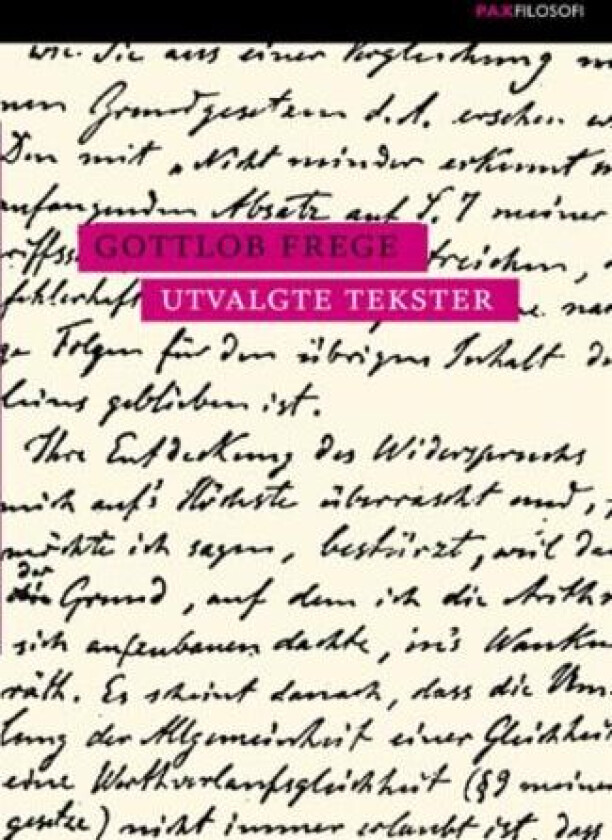 PAXFILOSOFI
wie. Sie aus einer Vergleichung
nen Grundgesetzen d. A. ersehen
Den mit „Nicht minder erkennt
anfangenden Absatz auf S. 7 meiner
GOTTLOB FREGE
streichen,
UTVALGTE TEKSTER
fehlerhaft
Folgen für den übrigen Inhalt
leins geblieben ist.
Ihre Entdeckung des Widerspruchs
mich auf's Höchste überrascht und,
möchte ich sagen, bestürzt, weil
der
Grund, auf dem ich die Arith
sich aufzubauen dachte, in's Wanken
räth. Es scheint danach, dass die Um
lung der Allgemeinheit einer Gleichheit
eine Werthverlaufsgleichheit (§9 meiner
gesetze) nicht immer erlaubt ist, dass